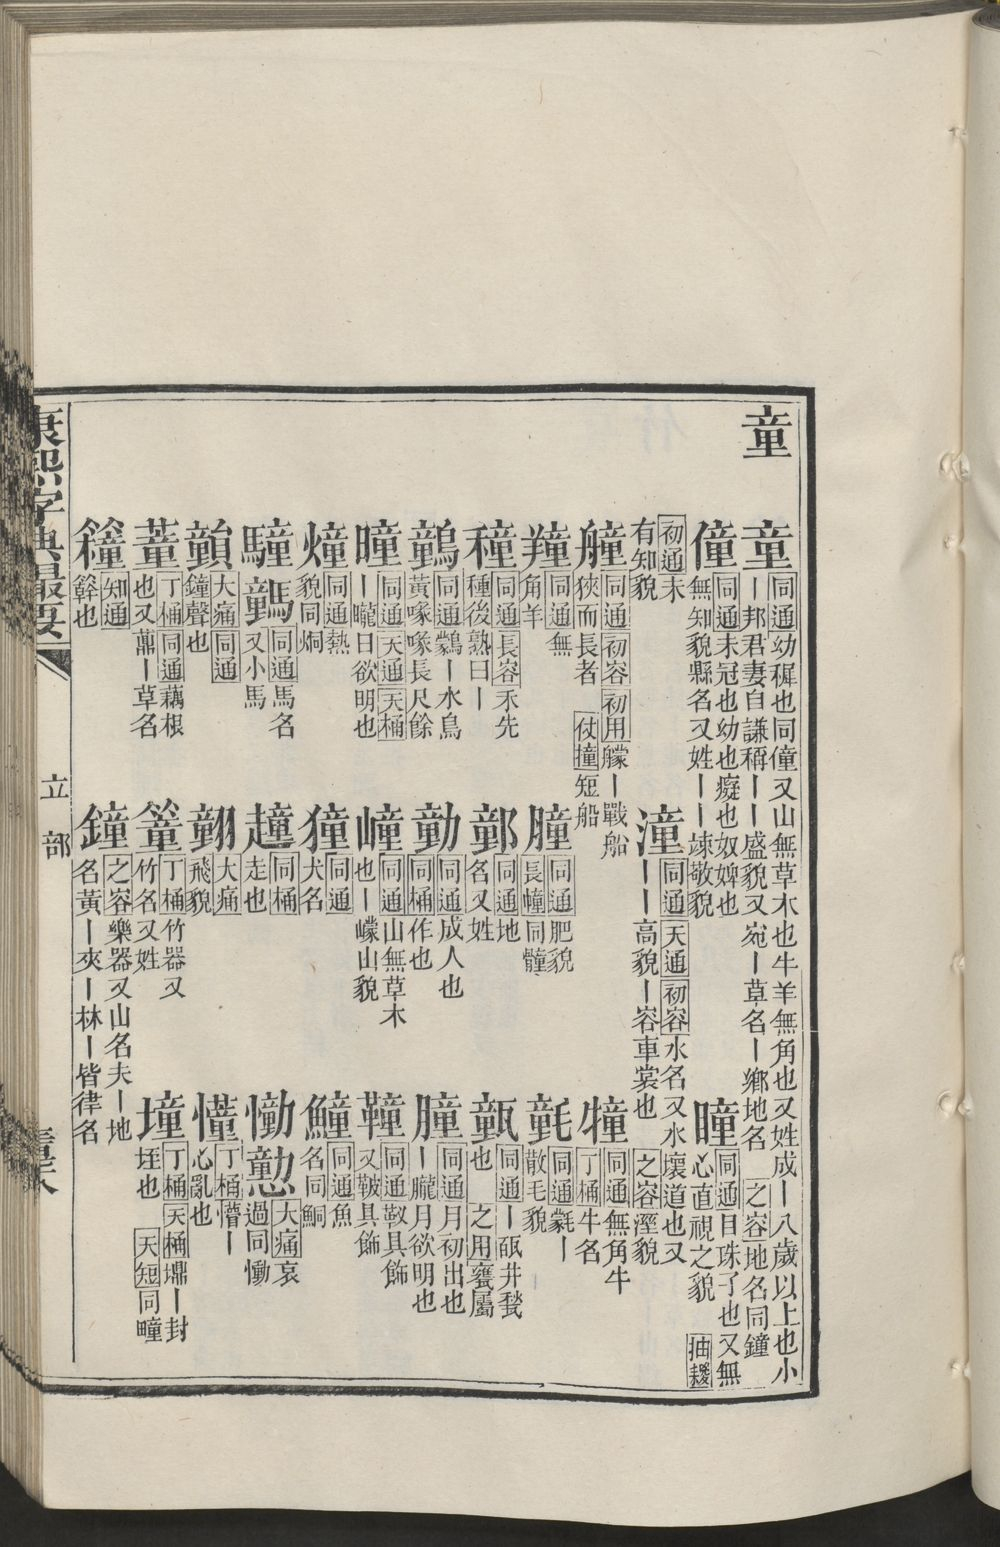 童
童 同通幼穉也同僮又山無草木也牛羊無角也又姓成丨八歲以上也小
丨邦君妻自謙稱丨丨盛貌又宛丨草名丨鄉地名 之容地名同鐘
僮 同通未冠也幼也癡也奴婢也
無知貌縣名又姓丨丨竦敬貌
瞳 同通目珠子也又無
心直視之貌 抽䅰
初通未
有知貌
潼 同通天通初容水名又水壞道也又
丨丨高貌丨容車裳也 之容溼貌
艟 同通初容初用艨丨戰船
狹而長者 仗撞短船
犝 同通無角牛
丁桶牛名
羵 同通無
角羊
膧 同通肥貌
長幢同髓
氃 同通氋丨
散毛貌
穜 同通長容禾先
種後熟曰丨
鄞 同通地
名又姓
甀 同通丨瓳井甃
也 之用甕屬
鷾 同通鸏丨水鳥
黃喙喙長尺餘
勭 同通成人也
同桶作也
朣 同通月初出也
丨朧月欲明也
曈 同通天通天桶
丨曨日欲明也
㠉 同通山無草木
也丨㠓山貌
鞸 同通馭具飾
又鞁具飾
燑 同通熱
貌同炯
獞 同通
犬名
鱦 同通魚
名同鮦
驙 䮵 同通馬名
又小馬
䞬 同桶
走也
慟 憅 大痛哀
過同慟
䫪 大痛同通
鐘聲也
䎓 大痛
飛貌
憧 丁桶懵丨
心亂也
董 丁桶同通藕根
也又蘬丨草名
䈏 丁桶竹器又
竹名又姓
墥 丁桶天桶壜丨封
垤也 天短同疃
籦 知通
簳也
鐘 之容樂器又山名夫丨地
名黃丨夾丨林丨皆律名
康熙字典撮要
立部